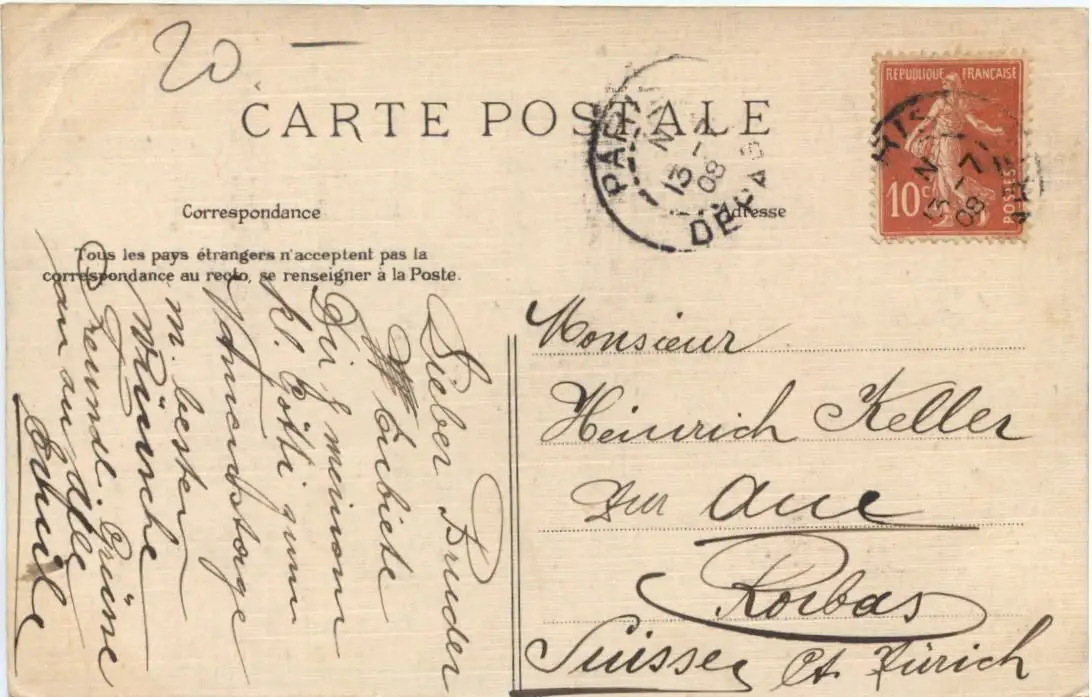 20
CARTE POSTALE
PARIS
13 - 7
08
DÉPART
REPUBLIQUE FRANÇAISE
10 c
POSTES
13 - 7
08
Correspondance
Adresse
Tous les pays étrangers n'acceptent pas la
correspondance au recto, se renseigner à la Poste.
Lieber Bruder
Entbiete
Dir & meinem
kl. Götti zum
Namenstage
m. besten
Wünsche
Freundl. Grüsse
an alle
Emile
Monsieur
Heinrich Keller
zur Aue
Rorbas
Suisse Ct. Zürich